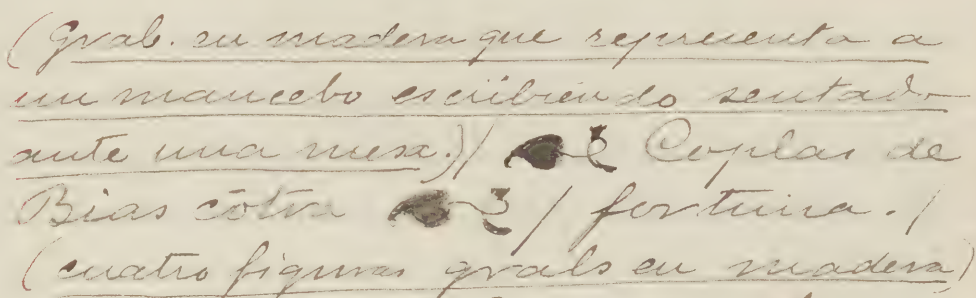 (Grab. en madera que representa a
un mancebo escribiendo sentado
ante una mesa.)/ ☙ Coplas de
Bias cōtra ☙ / fortuna. /
(cuatro figuras grabs en madera)